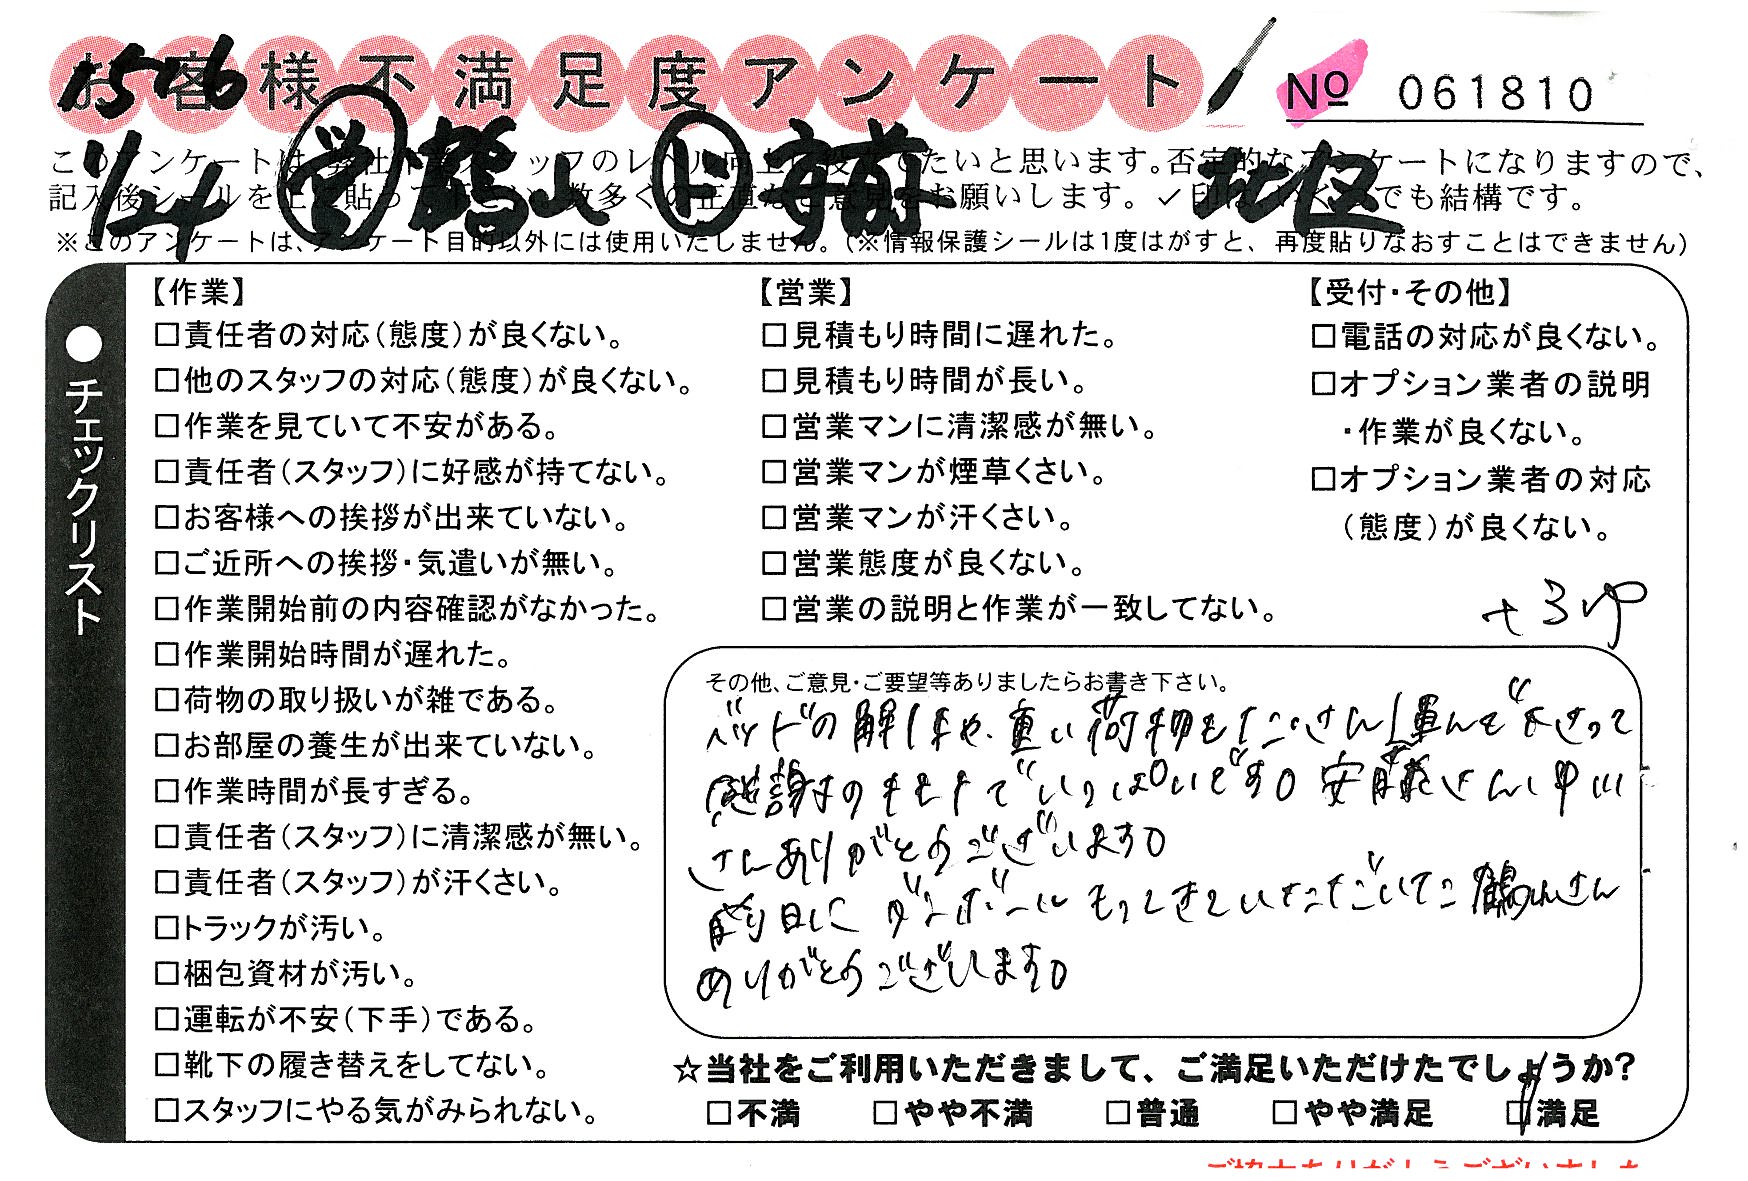 お客様不満足度アンケート
№ 061810
1576
1/24 営 鶴山 ド 守前 北区
このアンケートは たいと思います。否定的なアンケートになりますので、
記入後シールを上に貼って 数多くの正直なご意見をお願いします。✓印は でも結構です。
※このアンケートは、アンケート目的以外には使用いたしません。(※情報保護シールは1度はがすと、再度貼りなおすことはできません)
●チェックリスト
【作業】
□責任者の対応(態度)が良くない。
□他のスタッフの対応(態度)が良くない。
□作業を見ていて不安がある。
□責任者(スタッフ)に好感が持てない。
□お客様への挨拶が出来ていない。
□ご近所への挨拶・気遣いが無い。
□作業開始前の内容確認がなかった。
□作業開始時間が遅れた。
□荷物の取り扱いが雑である。
□お部屋の養生が出来ていない。
□作業時間が長すぎる。
□責任者(スタッフ)に清潔感が無い。
□責任者(スタッフ)が汗くさい。
□トラックが汚い。
□梱包資材が汚い。
□運転が不安(下手)である。
□靴下の履き替えをしてない。
□スタッフにやる気がみられない。
【営業】
□見積もり時間に遅れた。
□見積もり時間が長い。
□営業マンに清潔感が無い。
□営業マンが煙草くさい。
□営業マンが汗くさい。
□営業態度が良くない。
□営業の説明と作業が一致してない。
【受付・その他】
□電話の対応が良くない。
□オプション業者の説明
・作業が良くない。
□オプション業者の対応
(態度)が良くない。
+3
その他、ご意見・ご要望等ありましたらお書き下さい。
ベッドの解体や、重い荷物もたくさん運んで下さって
感謝のきもちでいっぱいです。安藤さん、中川
さんありがとうございます。
前日に ダンボール もってきていただいた 鶴山さん
ありがとうございます。
☆当社をご利用いただきまして、ご満足いただけたでしょうか?
□不満 □やや不満 □普通 □やや満足 ☑満足
ご協力ありがとうございました